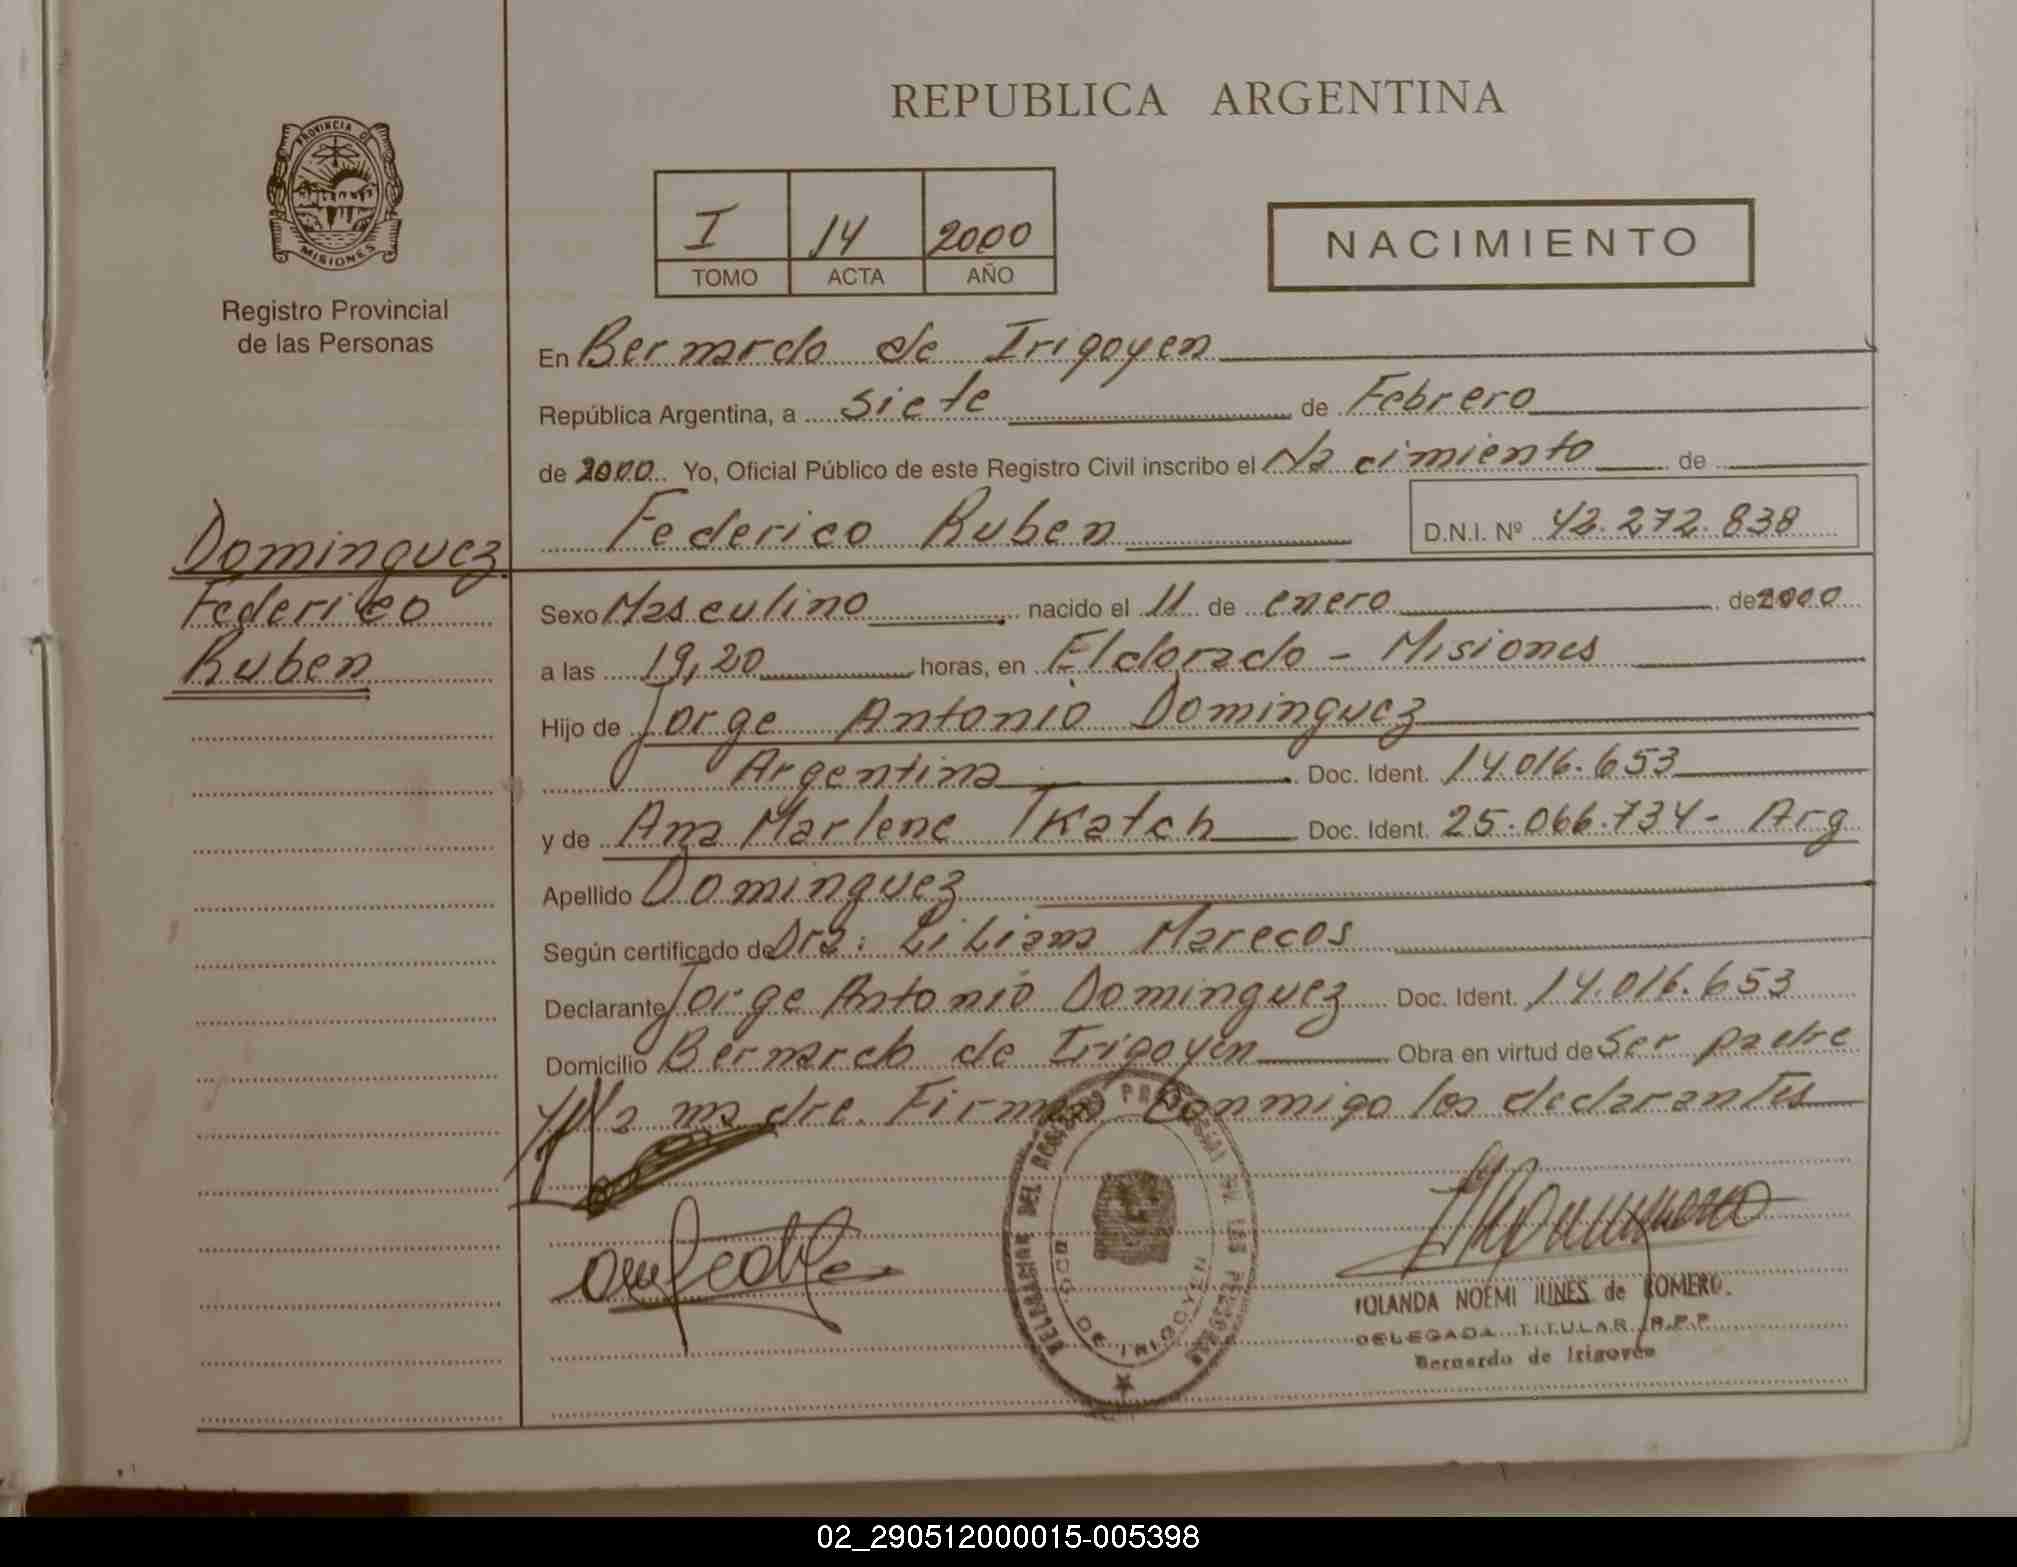 PROVINCIA DE
MISIONES
Registro Provincial
de las Personas
Dominguez
Federico
Ruben
REPUBLICA ARGENTINA
I 14 2000
TOMO ACTA AÑO
NACIMIENTO
En Bernardo de Irigoyen
República Argentina, a siete de Febrero
de 2000 Yo, Oficial Público de este Registro Civil inscribo el Nacimiento de
Federico Ruben D.N.I. Nº 42.272.838
Sexo Masculino nacido el 11 de enero de 2000
a las 19,20 horas, en Eldorado - Misiones
Hijo de Jorge Antonio Dominguez
Argentina Doc. Ident. 14.016.653
y de Ana Marlene Tkatch Doc. Ident. 25.066.734 - Arg
Apellido Dominguez
Según certificado de Dra: Liliana Marecos
Declarante Jorge Antonio Dominguez Doc. Ident. 14.016.653
Domicilio Bernardo de Irigoyen Obra en virtud de ser padre
y la madre. Firman Conmigo los declarantes
DEL REGISTRO PROVINCIAL DE LAS PERSONAS
BDO. DE IRIGOYEN
YOLANDA NOEMI IUNES de ROMERO.
DELEGADA TITULAR R.P.P.
Bernardo de Irigoyen
02_290512000015-005398